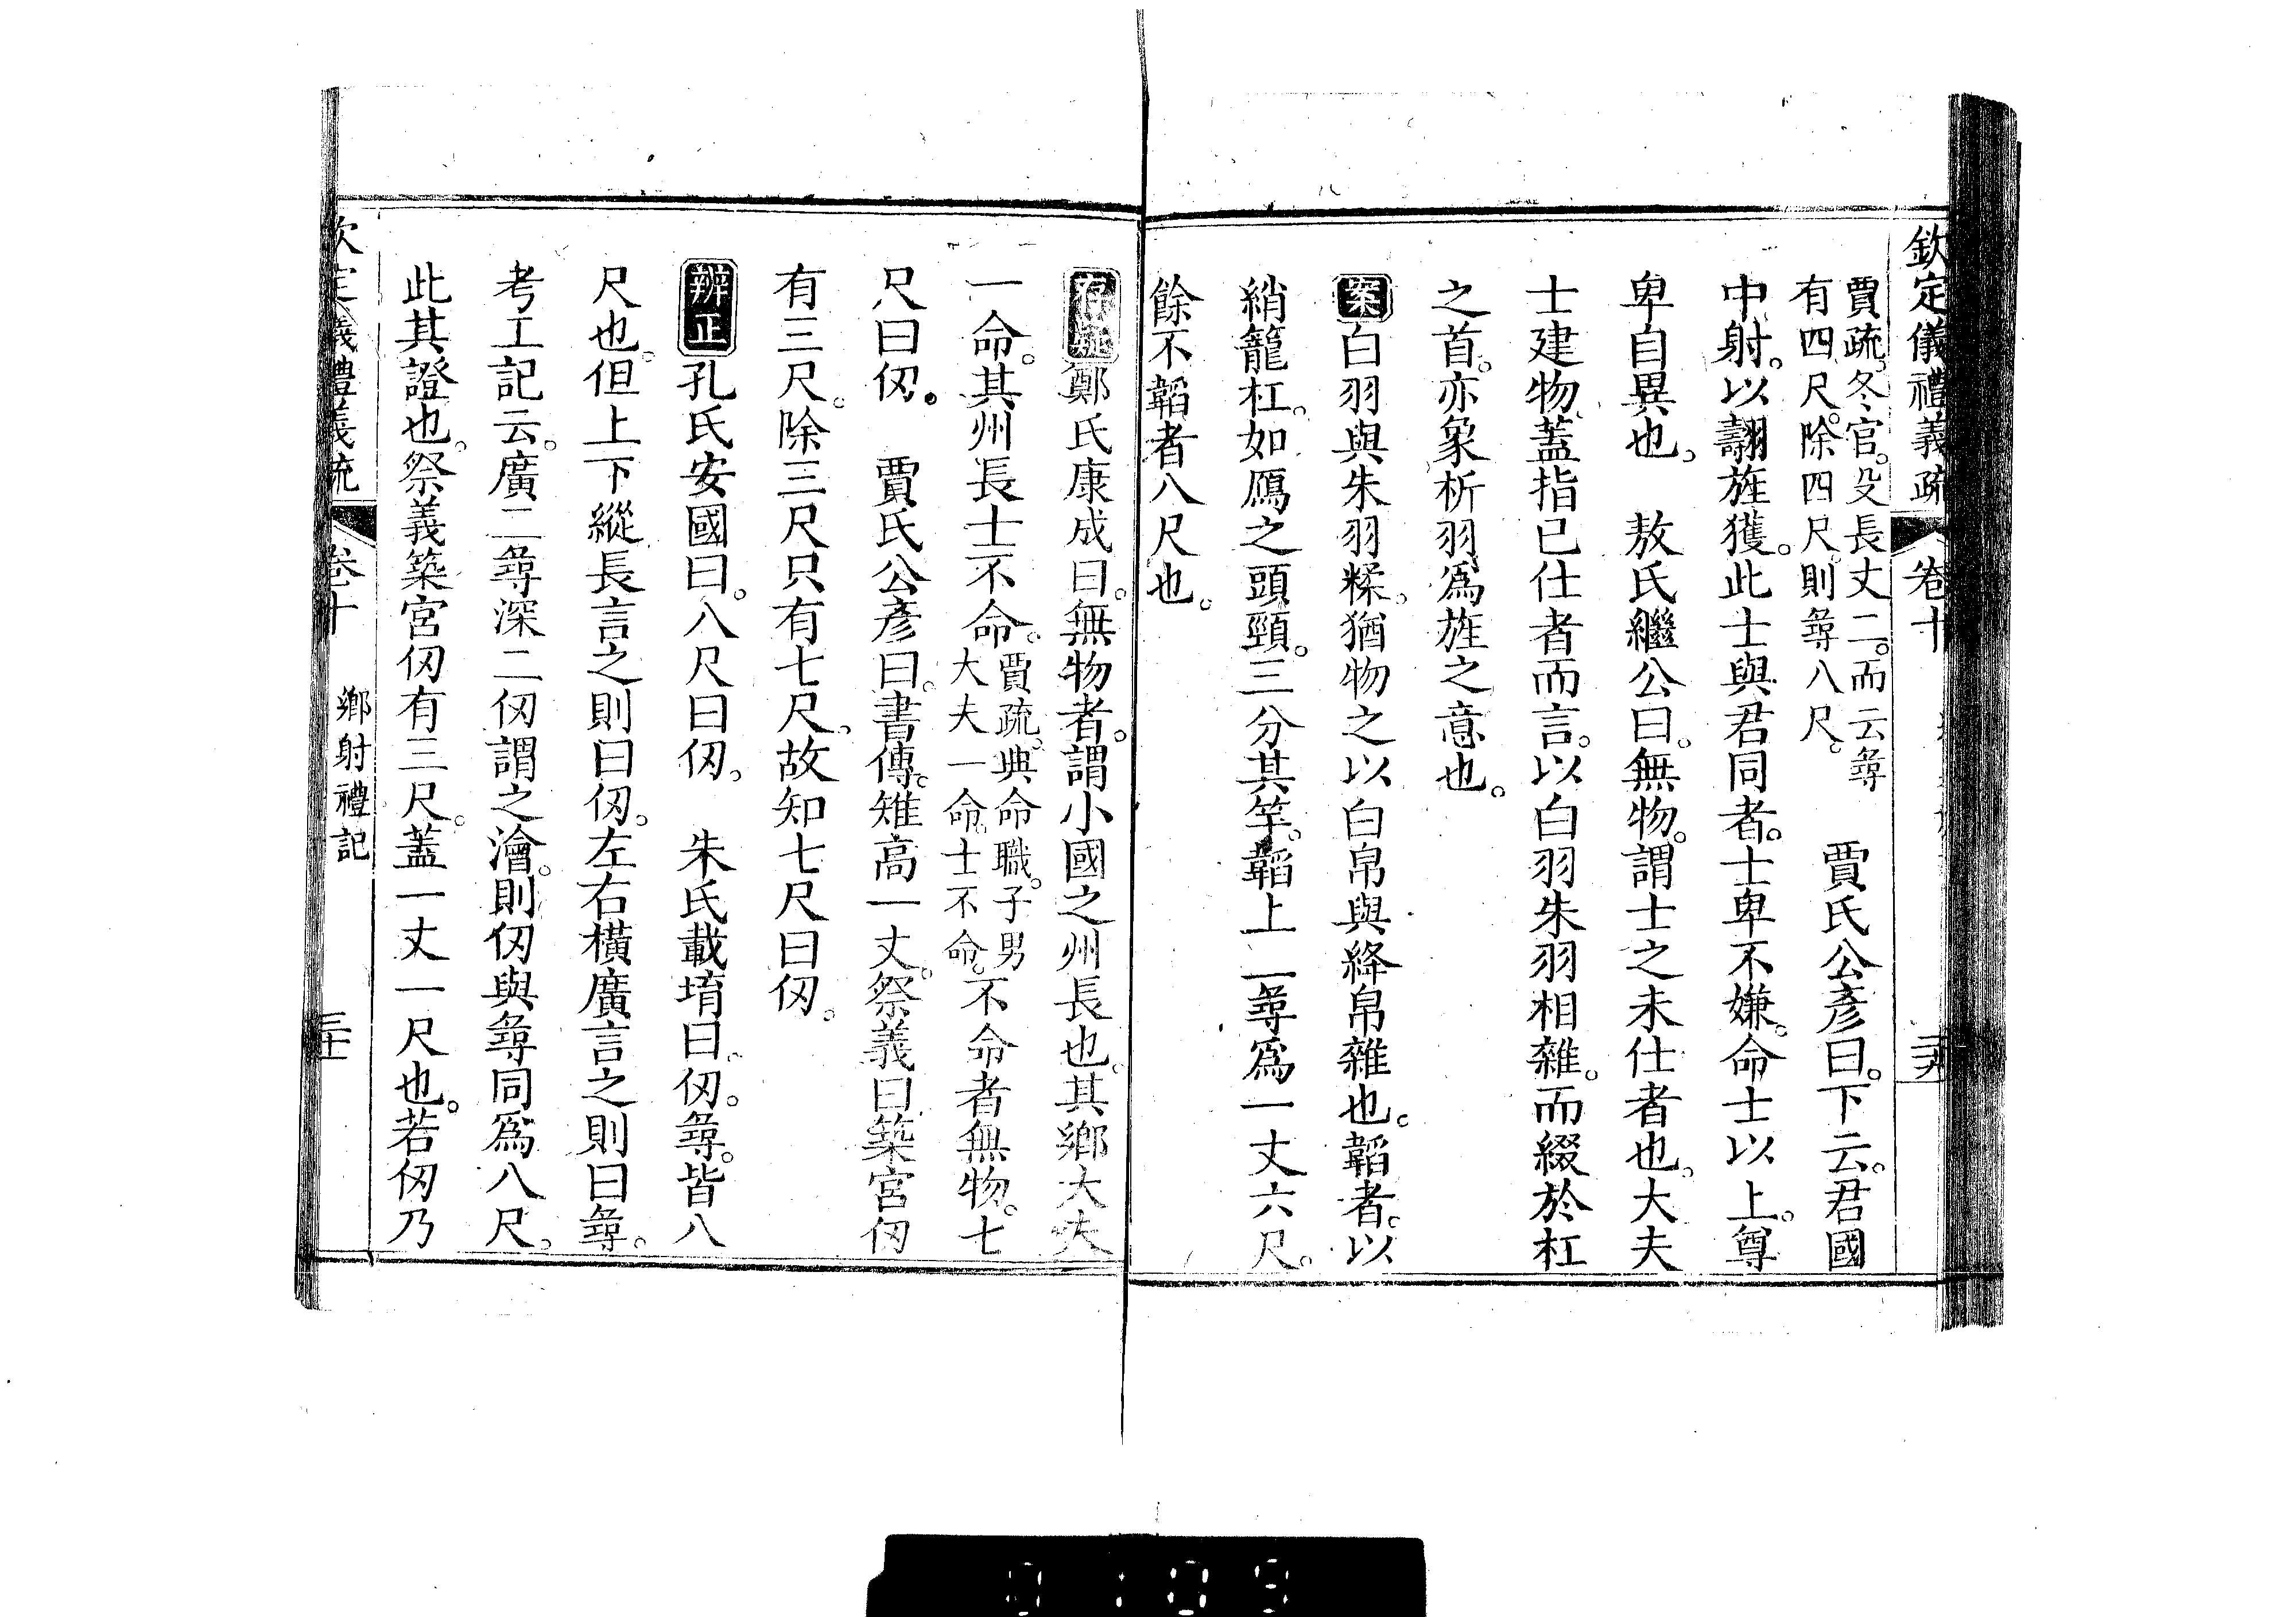 欽定儀禮義疏 卷十 三十九
賈疏。冬官。殳長丈二。而云尋
有四尺。除四尺。則尋八尺。
賈氏公彥曰。下云。君國
中射。以翿旌獲。此士與君同者。士卑不嫌。命士以上。尊
卑自異也。 敖氏繼公曰。無物。謂士之未仕者也。大夫
士建物。蓋指已仕者而言。以白羽朱羽相雜。而綴於杠
之首。亦象析羽爲旌之意也。
案 白羽與朱羽糅。猶物之以白帛與絳帛雜也。韜者。以
綃籠杠。如鴈之頭頸。三分其竿。韜上二尋爲一丈六尺。
餘不韜者八尺也。
存疑 鄭氏康成曰。無物者。謂小國之州長也。其鄉大夫
一命。其州長士不命。
賈疏。典命職。子男
大夫一命。士不命。
不命者無物。七
尺曰仞。 賈氏公彥曰。書傳。雉高一丈。祭義曰築宮仞
有三尺。除三尺只有七尺。故知七尺曰仞。
辨正 孔氏安國曰。八尺曰仞。 朱氏載堉曰。仞。尋。皆八
尺也。但上下縱長言之則曰仞。左右橫廣言之則曰尋。
考工記云。廣二尋深二仞謂之澮。則仞與尋同爲八尺。
此其證也。祭義築宮仞有三尺。蓋一丈一尺也。若仞乃
欽定儀禮義疏 卷十 鄉射禮記